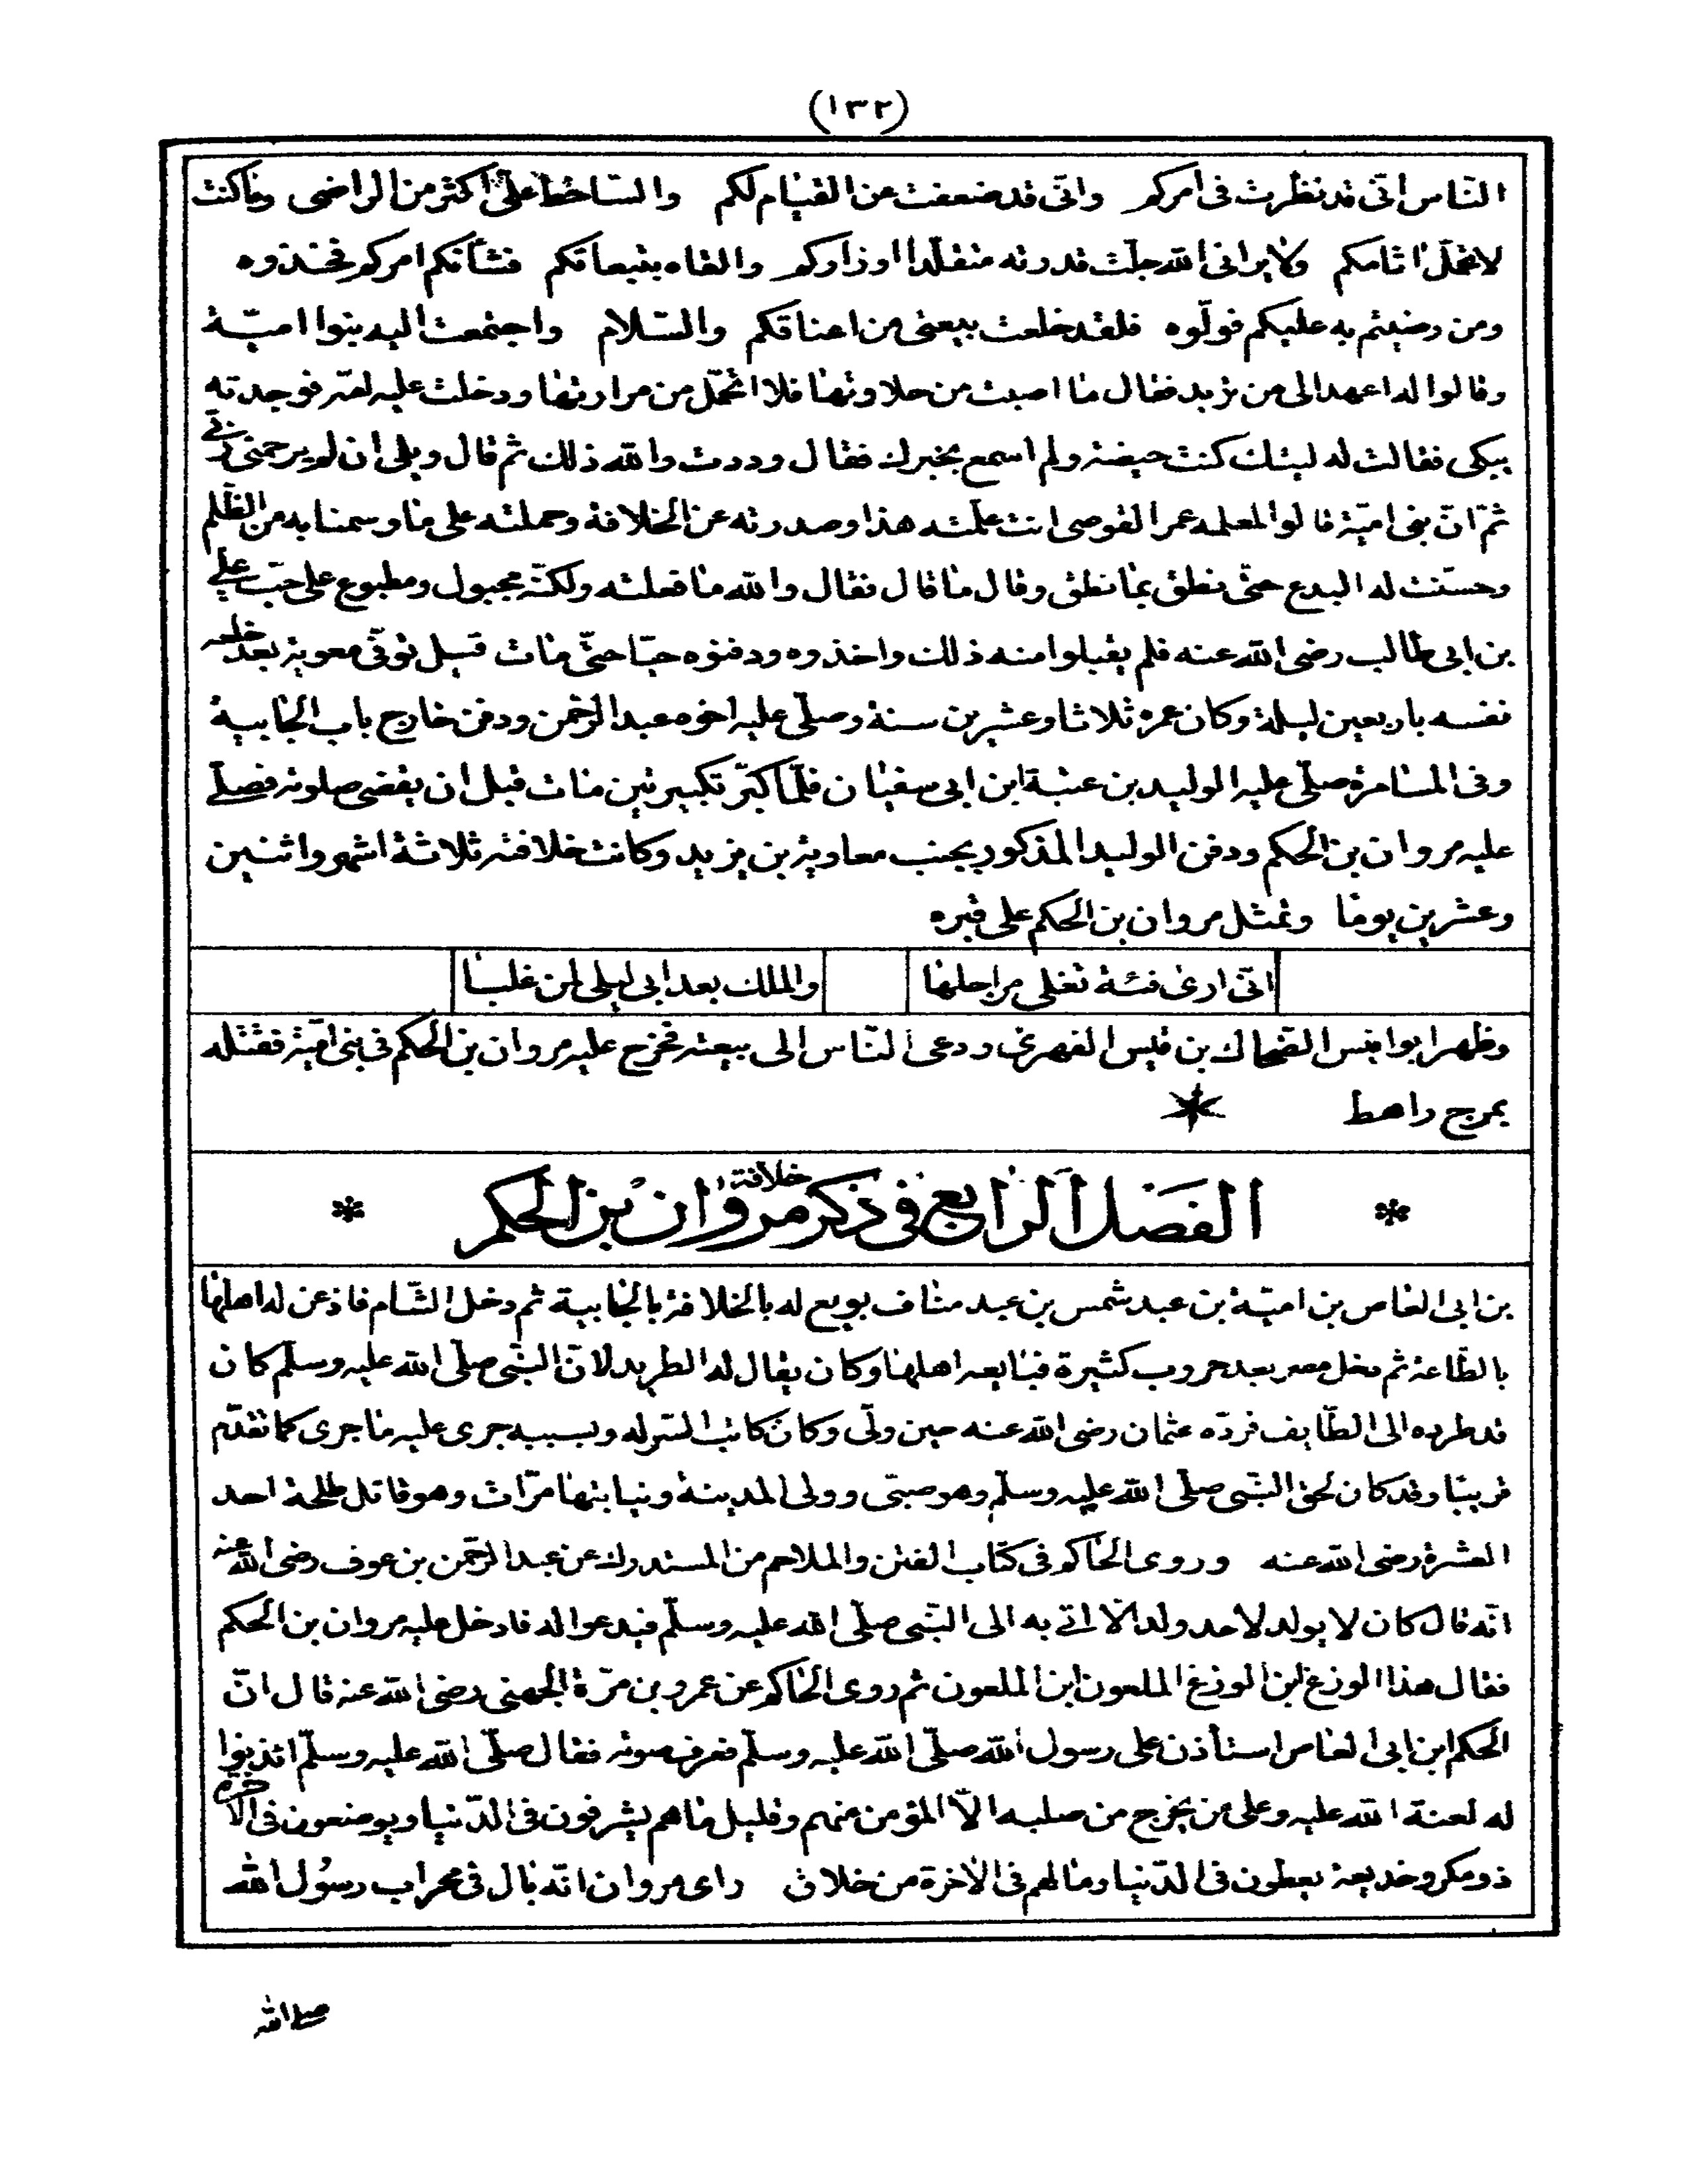 (١٣٢)
النّاس انّى قد نظرت فى امركم وانّى قد ضعفت عن القيام لكم والسّاخط علىّ اكثر من الراضى وماكنت
لاتحمّل اثامكم ولا يرانى الله جلّت قدرته متقلّدا اوزاركم والقاه بتبعاتكم فشأنكم امركم فخذوه
ومن رضيتم به عليكم فولّوه فلقد خلعت بيعتى من اعناقكم والسّلام واجتمعت اليه بنوا اميّة
وقالوا له اعهد الى من تريد فقال ما اصبت من حلاوتها فلا اتحمّل من مرارتها ودخلت عليه امّه فوجدته
يبكى فقالت له ليتك كنت حيضة ولم اسمع بخبرك فقال وددت والله ذلك ثم قال ويلى ان لم يرحمنى ربّى
ثمّ انّ بنى اميّة قالوا لمعلمه عمر القوصى انت علّمته هذا وصدرته عن الخلافة وحملته على ما وسمنا به من الظّلم
وحسّنت له البدع حتّى نطق بما نطق وقال ما قال فقال والله ما فعلته ولكنّه مجبول ومطبوع على حبّ على
بن ابى طالب رضى الله عنه فلم يقبلوا منه ذلك واخذوه ودفنوه حيّا حتّى مات قيل توفّى معوية بعد خلعه
نفسه باربعين ليلة وكان عمره ثلاثا وعشرين سنة وصلّى عليه اخوه عبد الرّحمن ودفن خارج باب الجابية
وفى المسامرة صلّى عليه الوليد بن عتبة ابن ابى سفيان فلمّا كبّر تكبيرتين مات قبل ان يقضى صلوته فصلّى
عليه مروان بن الحكم ودفن الوليد المذكور بجنب معاوية بن يزيد وكانت خلافته ثلاثة اشهر واثنين
وعشرين يوما وتمثل مروان بن الحكم على قبره
انّى ارى فتنة تغلى مراجلها والملك بعد ابى ليلى لمن غلبا
وظهر ابوا نيس الضّحاك بن قيس الفهرى ودعى النّاس الى بيعته فخرج عليه مروان بن الحكم فى بنى اميّة فقتله
بمرج راهط
الفصل الرابع فى ذكر خلافة مروان بن الحكم
بن ابى العاص بن اميّة بن عبد شمس بن عبد مناف بويع له بالخلافة بالجابية ثم دخل الشّام فاذعن له اهلها
بالطّاعة ثم دخل مصر بعد حروب كثيرة فبايعه اهلها وكان يقال له الطريد لانّ النّبى صلّى الله عليه وسلّم كان
قد طرده الى الطّايف فردّه عثمان رضى الله عنه حين ولّى وكان كاتب السّر له وبسببه جرى عليه ما جرى كما تقدّم
قريبا وقد كان لحق النّبى صلّى الله عليه وسلّم وهو صبّى وولى المدينة ونيابتها مرّات وهو قاتل طلحة احد
العشرة رضى الله عنه وروى الحاكم فى كتاب الفتن والملاحم من المستدرك عن عبد الرّحمن بن عوف رضى الله عنه
انّه قال كان لا يولد لاحد ولد الّا اتى به الى النّبى صلّى الله عليه وسلّم فيدعوا له فادخل عليه مروان بن الحكم
فقال هذا الوزغ ابن الوزغ الملعون ابن الملعون ثم روى الحاكم عن عمرو بن مرّة الجهنى رضى الله عنه قال انّ
الحكم ابن ابى العاص استأذن على رسول الله صلّى الله عليه وسلّم فعرف صوته فقال صلّى الله عليه وسلّم ائذنوا
له لعنة الله عليه وعلى من يخرج من صلبه الّا المؤمن منهم وقليل ما هم يشرفون فى الدّنيا ويوضعون فى الاخرة
ذو مكر وخديعة يعطون فى الدّنيا وما لهم فى الآخرة من خلاق راى مروان انّه بال فى محراب رسول الله
صلى الله